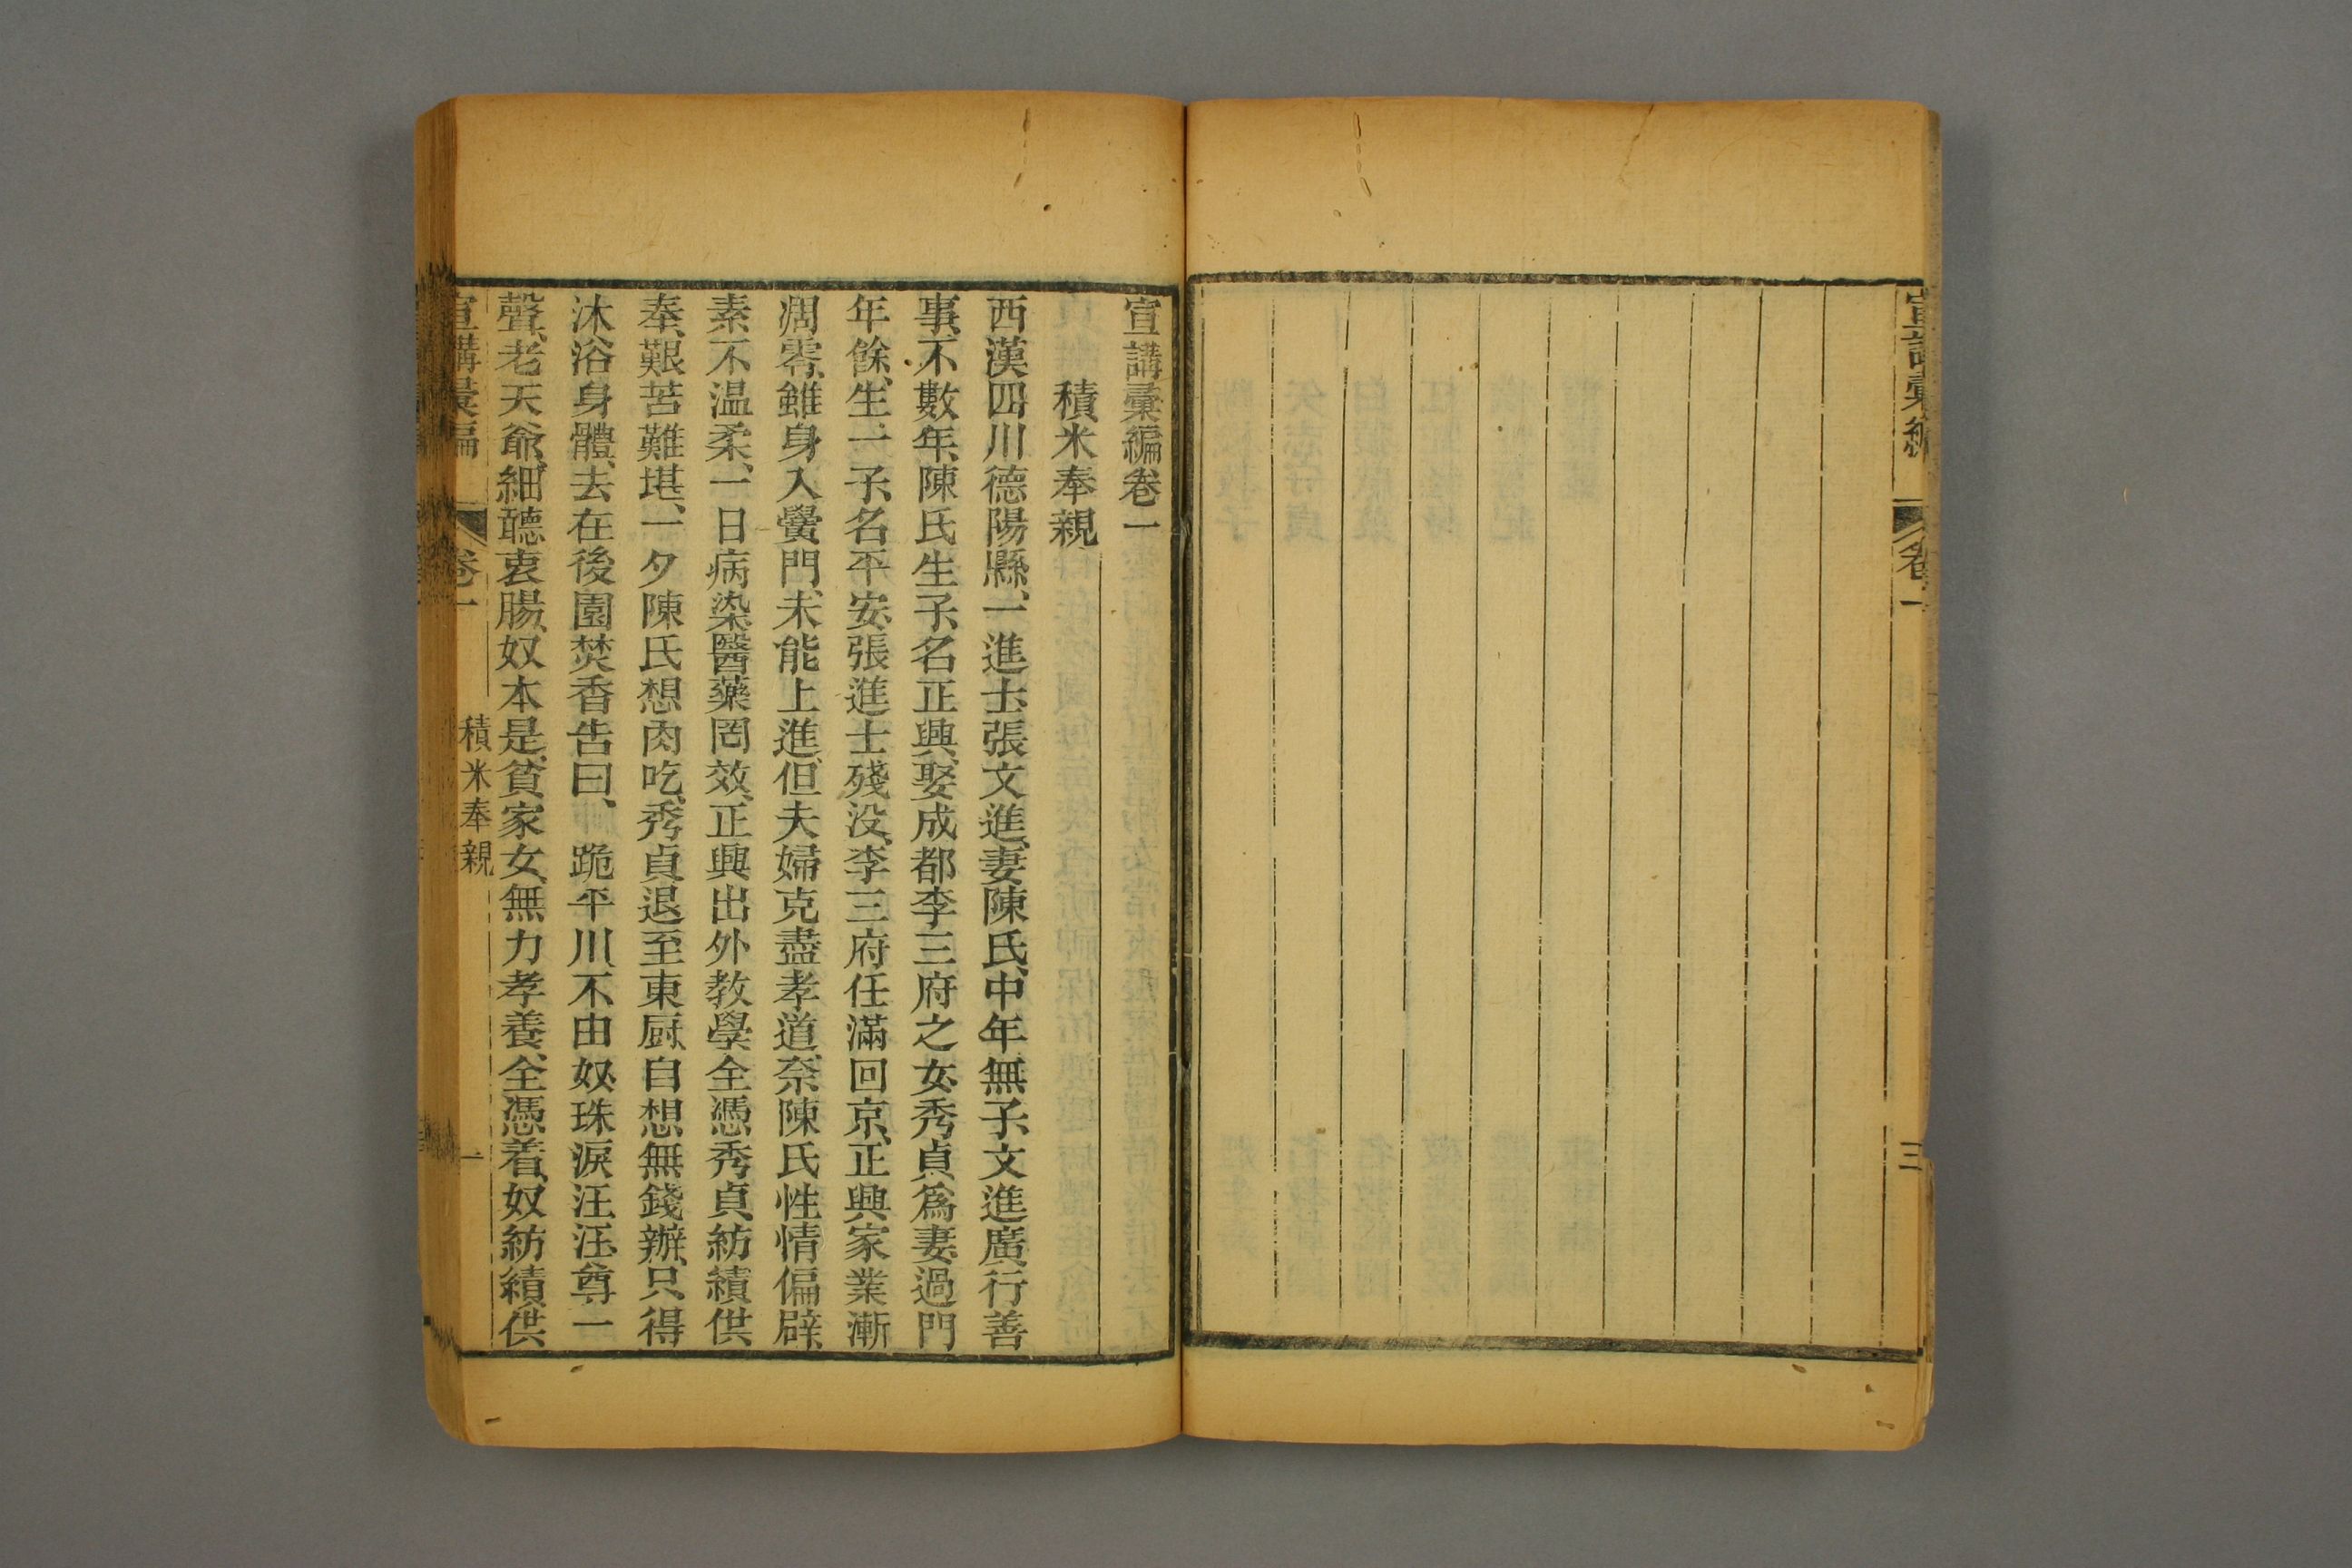 宣講彙編
卷一
三
宣講彙編卷一
積米奉親
西漢四川德陽縣、一進士、張文進、妻陳氏、中年無子、文進廣行善
事、不數年、陳氏生子、名正興、娶成都李三府之女、秀貞爲妻、過門
年餘、生一子、名平安、張進士殘没、李三府任滿回京、正興家業漸
凋零、雖身入黌門、未能上進、但夫婦克盡孝道、奈陳氏性情偏辟、
素不温柔、一日病染、醫藥罔效、正興出外教學、全憑秀貞紡績供
奉、艱苦難堪、一夕陳氏想肉吃、秀貞退至東厨、自想無錢辦、只得
沐浴身體、去在後園焚香告曰、跪平川、不由奴、珠淚汪汪、尊一
聲、老天爺、細聽衷腸、奴本是、貧家女、無力孝養、全憑着、奴紡績、供
宣講彙編
卷一
積米奉親
一